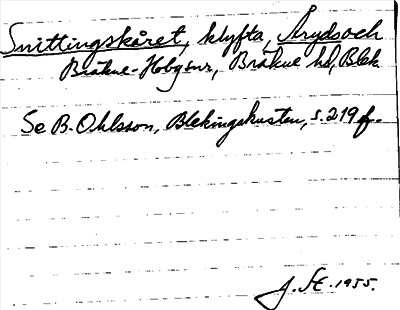 Snittingskåret, klyfta, Åryds och
Bräkne-Hoby snr, Bräkne hd, Blek.
Se B. Ohlsson, Blekingekusten, s. 219 f.
J. St. 1955.